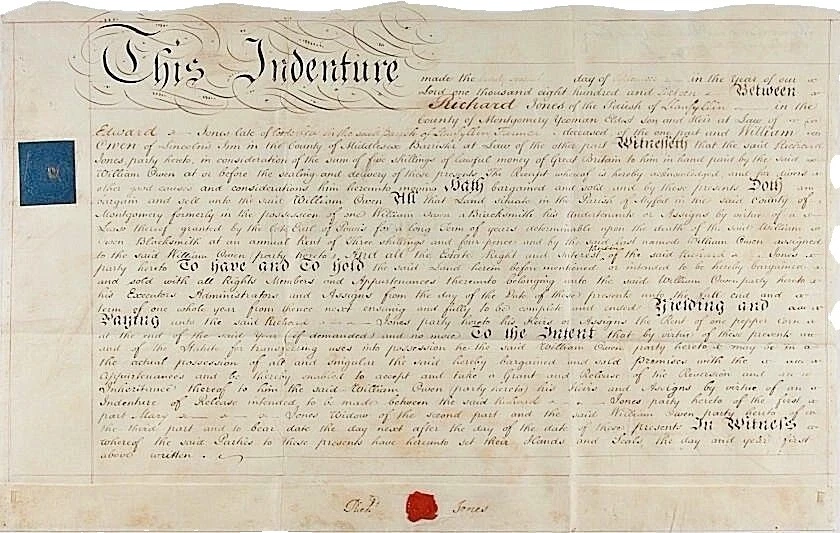 This Indenture
made the day of in the Year of our
Lord one thousand eight hundred and Between
Richard Jones of the Parish of Llanfyllin in the
County of Montgomery Yeoman Eldest son and Heir at Law of
Edward Jones late of in the said parish of Llanfyllin Farmer deceased of the one part and William
Owen of Lincoln's Inn in the County of Middlesex Barrister at Law of the other part Witnesseth that the said Richard
Jones party hereto, in consideration of the Sum of five Shillings of lawful money of Great Britain to him in hand paid by the said
William Owen at or before the sealing and delivery of these presents The Receipt whereof is hereby acknowledged, and for divers
other good causes and considerations him hereunto moving Hath bargained and sold and by these presents Doth
bargain and sell unto the said William Owen All that Land situate in the Parish of in the said County of
Montgomery formerly in the possession of one William Owen a Blacksmith his Undertenants or Assigns by virtue of a
Lease thereof granted by the late Earl of Powis for a long Term of years determinable upon the death of the said William
Owen Blacksmith at an annual Rent of three shillings and four pence and by the said last named William Owen assigned
to the said William Owen party hereto And all the Estate Right and Interest of the said Richard Jones
party hereto To have and To hold the said Land herein before mentioned or intended to be hereby bargained
and sold with all Rights Members and Appurtenances thereunto belonging unto the said William Owen party hereto
his Executors Administrators and Assigns from the day of the Date of these presents unto the full end and
term of one whole year from thence next ensuing and fully to be complete and ended Yielding and
Paying unto the said Richard Jones party hereto his Heirs or Assigns the Rent of one pepper Corn
at the end of the said Year (if demanded) and no more To the Intent that by virtue of these presents
and of the Statute for transferring uses into possession the said William Owen party hereto may be in
the actual possession of all and singular the said hereby bargained and said Premises with the
Appurtenances and be thereby enabled to accept and take a Grant and Release of the Reversion and
Inheritance thereof to him the said William Owen (party hereto) his Heirs and Assigns by virtue of an
Indenture of Release intended to be made between the said Richard Jones party hereto of the first
part Mary Jones Widow of the second part and the said William Owen party hereto of
the third part and to bear date the day next after the day of the date of these presents In Witness
whereof the said Parties to these presents have hereunto set their Hands and Seals the day and year first
above written.
Richd Jones